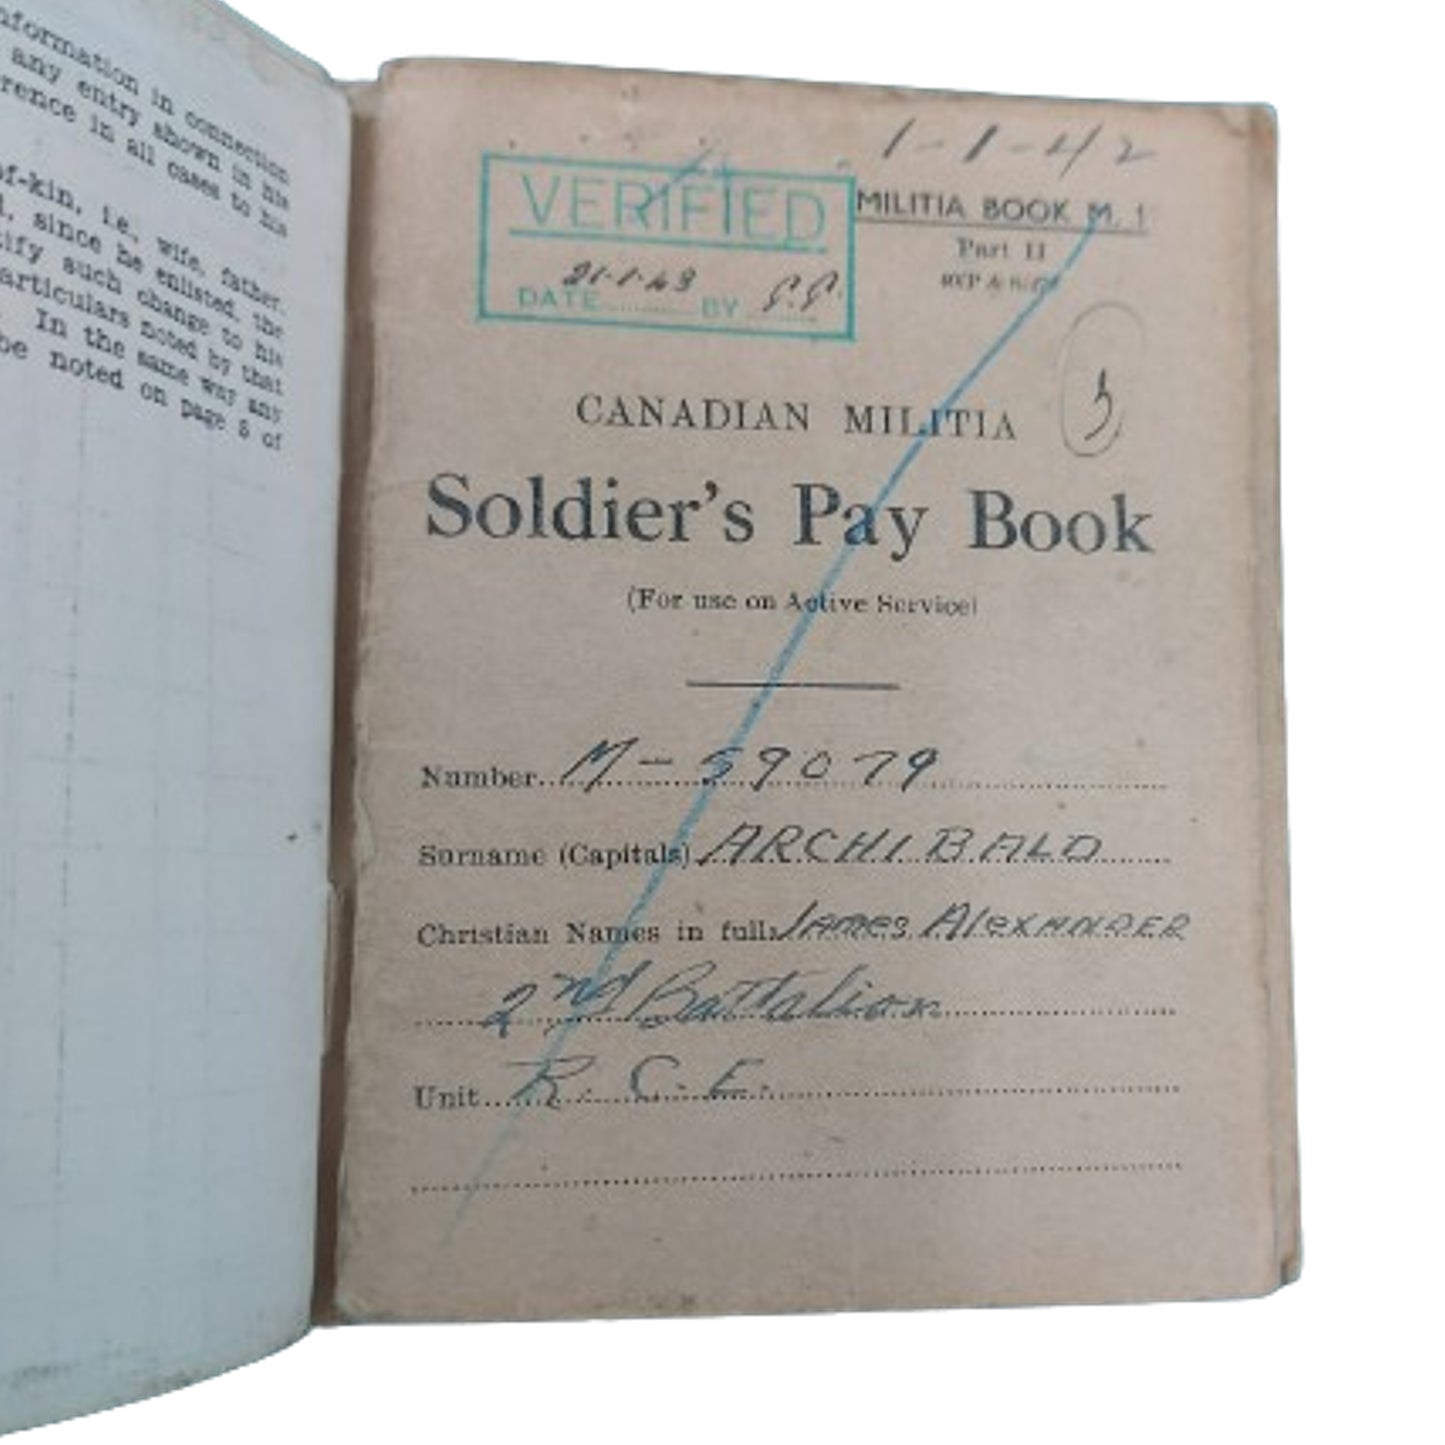 nformation in connection
any entry shown in his
rence in all cases to his
of-kin, i.e., wife, father,
d, since he enlisted, the
tify such change to his
articulars noted by that
In the same way any
be noted on page 8 of
1-1-42
VERIFIED
21-1-43
DATE BY
MILITIA BOOK M. 1
Part II
CANADIAN MILITIA
3
Soldier's Pay Book
(For use on Active Service)
Number M-59079
Surname (Capitals) ARCHIBALD
Christian Names in full James AlexANDER
2nd Battalion
Unit R.C.E.